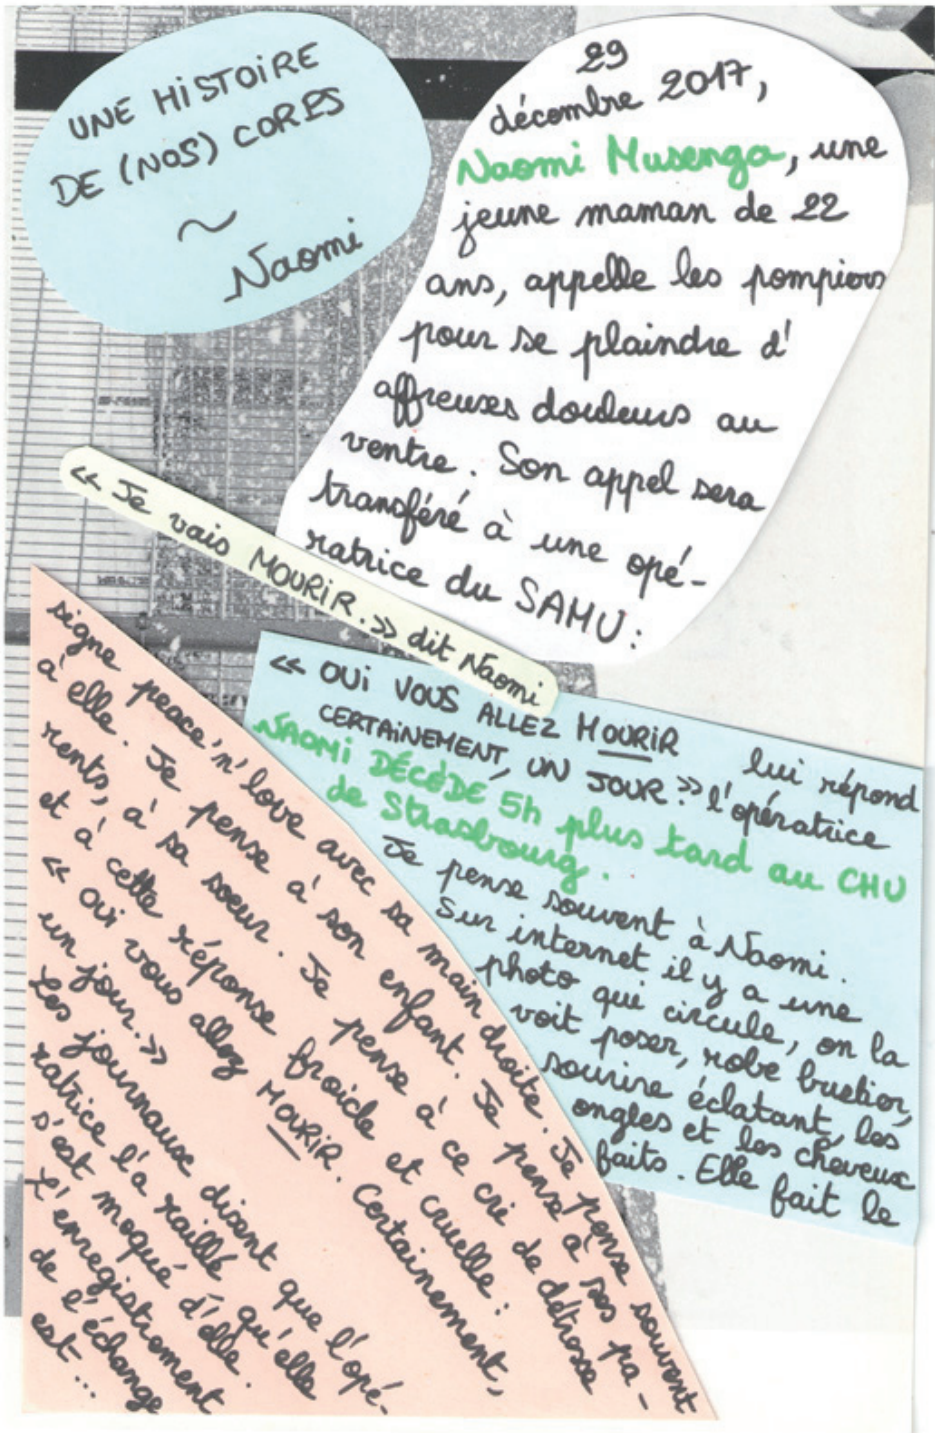 UNE HISTOIRE
DE (NOS) CORPS
~
Naomi
29
décembre 2017,
Naomi Musenga, une
jeune maman de 22
ans, appelle les pompiers
pour se plaindre d'
affreuses douleurs au
ventre. Son appel sera
transféré à une opé-
ratrice du SAMU :
« Je vais MOURIR. » dit Naomi
« OUI VOUS ALLEZ MOURIR
CERTAINEMENT, UN JOUR. » lui répond
l'opératrice
NAOMI DÉCÈDE 5h plus tard au CHU
de Strasbourg.
Je pense souvent à Naomi.
Sur internet il y a une
photo qui circule, on la
voit poser, robe bustier,
sourire éclatant, les
ongles et les cheveux
faits. Elle fait le
signe peace'n'love avec sa main droite. Je pense souvent
à elle. Je pense à son enfant. Je pense à ses pa-
rents, à sa soeur. Je pense à ce cri de détresse
et à cette réponse froide et cruelle :
« Oui vous allez MOURIR. Certainement,
un jour. »
Les journaux disent que l'opé-
ratrice l'a raillé qu'elle
s'est moqué d'elle.
L'enregistrement
de l'échange
est...